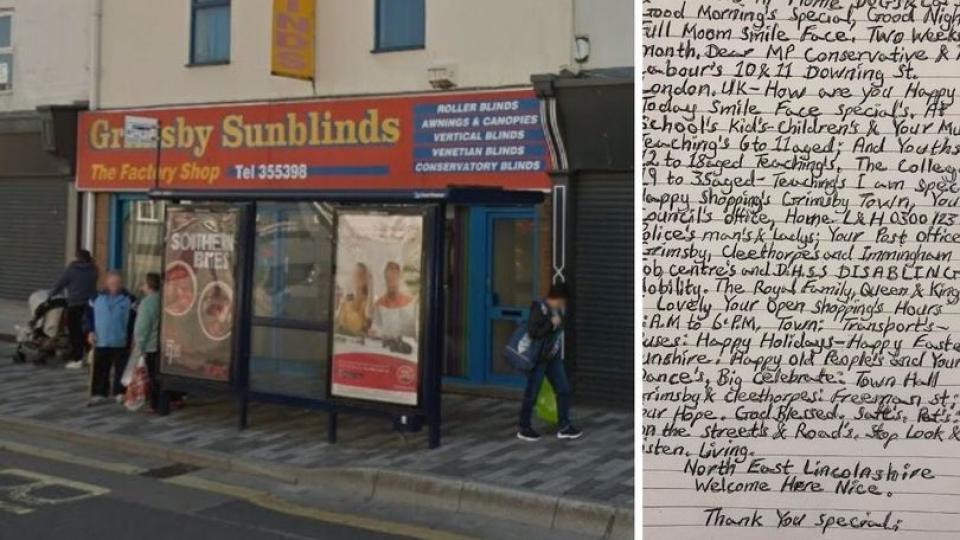 INDS
Grimsby Sunblinds
The Factory Shop
Tel 355398
ROLLER BLINDS
AWNINGS & CANOPIES
VERTICAL BLINDS
VENETIAN BLINDS
CONSERVATORY BLINDS
SOUTHERN
BITES
Good Morning's Special, Good Nigh
Full Moom Smile Face. Two Weeks
month. Dear MP Conservative &
Labour's 10 & 11 Downing St.
London. UK - How are you Happy
Today Smile Face special's. As
School's Kid's-Children's & Your Mu
Teaching's 6to 11aged: And Youths
12 to 18aged Teaching's. The Colleg
19 to 35aged- Teaching's I am spec
Happy Shopping's Grimsby Town, You
Council's office, Home. L&H 0300 123
Police's man's & lady's; Your Post Office
Grimsby, Cleethorpes and Immingham
Job centre's and D.H.S.S DISABLING
Mobility. The Royal Family, Queen & King
Lovely Your Open Shopping's Hours
A.M to 6.P.M, Town: Transport's~
uses: Happy Holidays-Happy Easte
unshire. Happy old People's and Your
Dance's, Big Celebrate: Town Hall
Grimsby & Cleethorpes: Freeman st:
our Hope. God Blessed.
on the street's & Road's. Stop Look &
isten. Living.
North East Lincolnshire
Welcome Here Nice.
Thank You special;